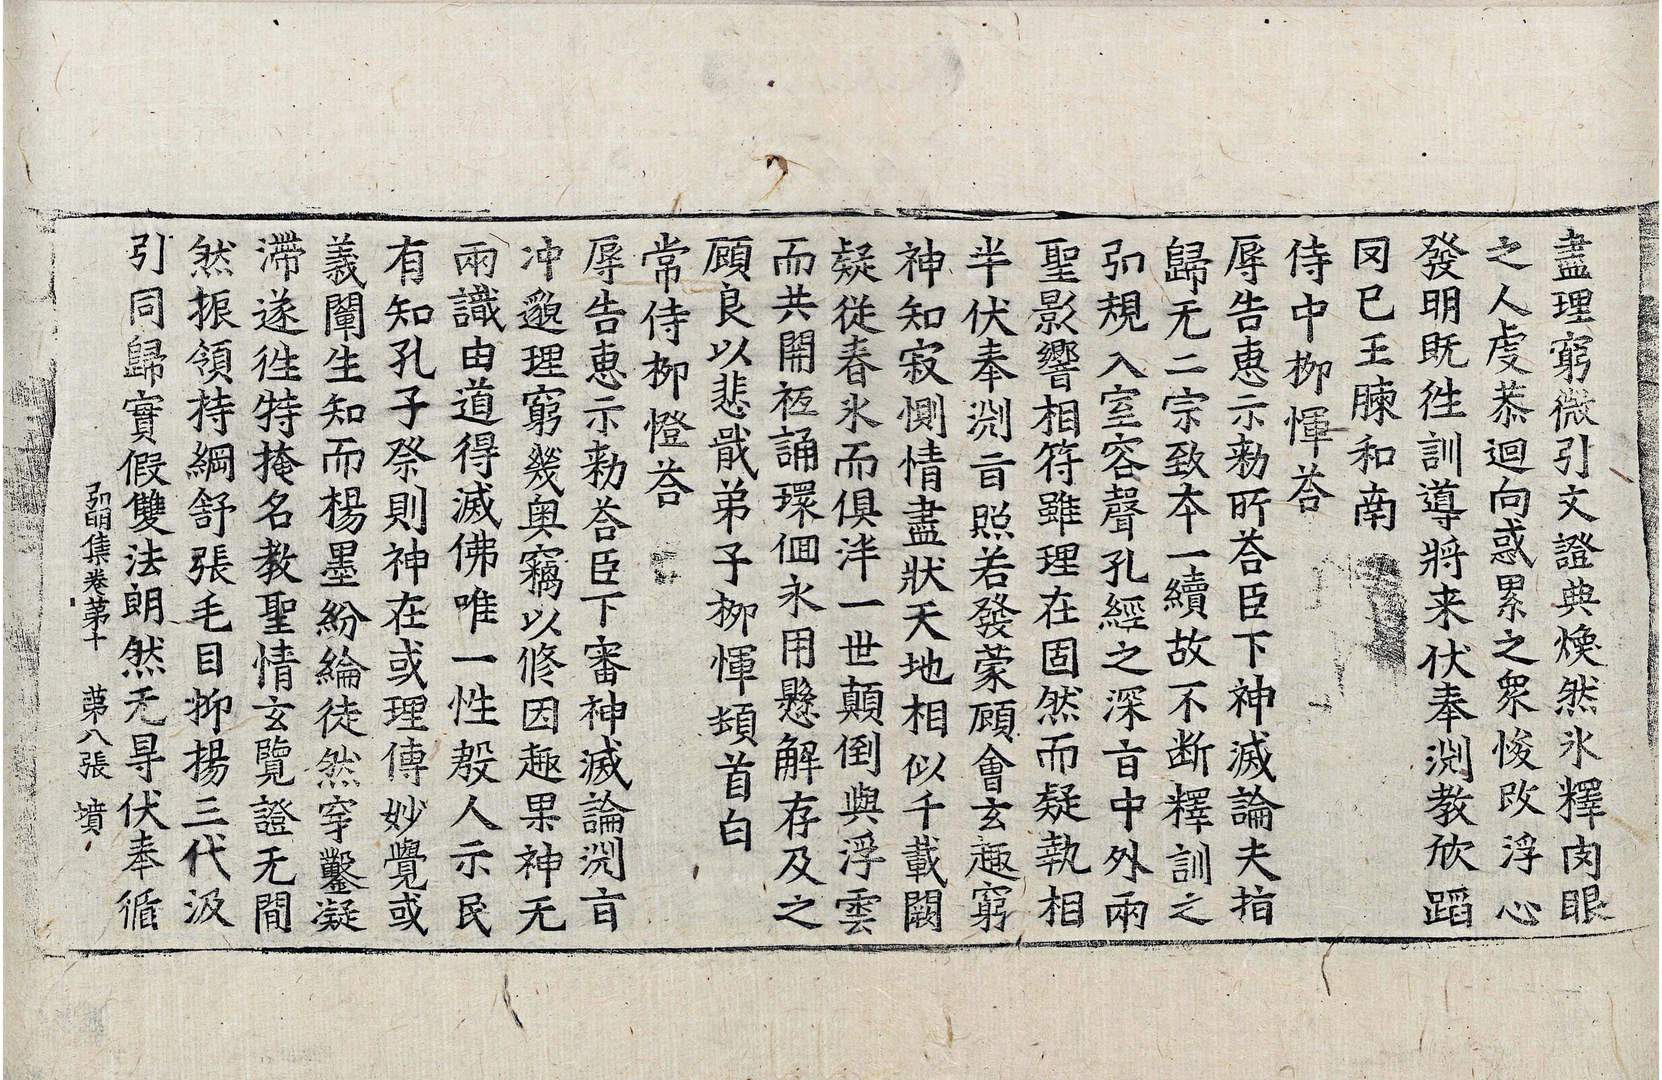 盡理窮微引文證典煥然氷釋肉眼
之人虔恭迴向惑累之衆悛改浮心
發明既徃訓導將来伏奉渕教欣蹈
罔已王暕和南
侍中栁惲荅
辱告惠示勑所荅臣下神滅論夫指
歸无二宗致夲一續故不断釋訓之
弘規入室容聲孔經之深㫖中外兩
聖影響相符雖理在固然而疑執相
半伏奉渕㫖照若發蒙顧會玄趣窮
神知寂惻情盡狀天地相似千載闕
疑從春氷而俱泮一世顛倒與浮雲
而共開祗誦環佪永用懸解存及之
顧良以悲戢弟子栁惲頓首白
常侍栁憕荅
辱告惠示勑荅臣下審神滅論渕㫖
冲邈理窮幾奥竊以修因趣果神无
兩識由道得滅佛唯一性殷人示民
有知孔子祭則神在或理傳妙覺或
義闡生知而楊墨紛綸徒然穿鑿凝
滯遂徃特掩名教聖情玄覽證无間
然振領持綱舒張毛目抑揚三代汲
引同歸實假雙法朗然无㝵伏奉循
弘明集卷第十　第八張　墳